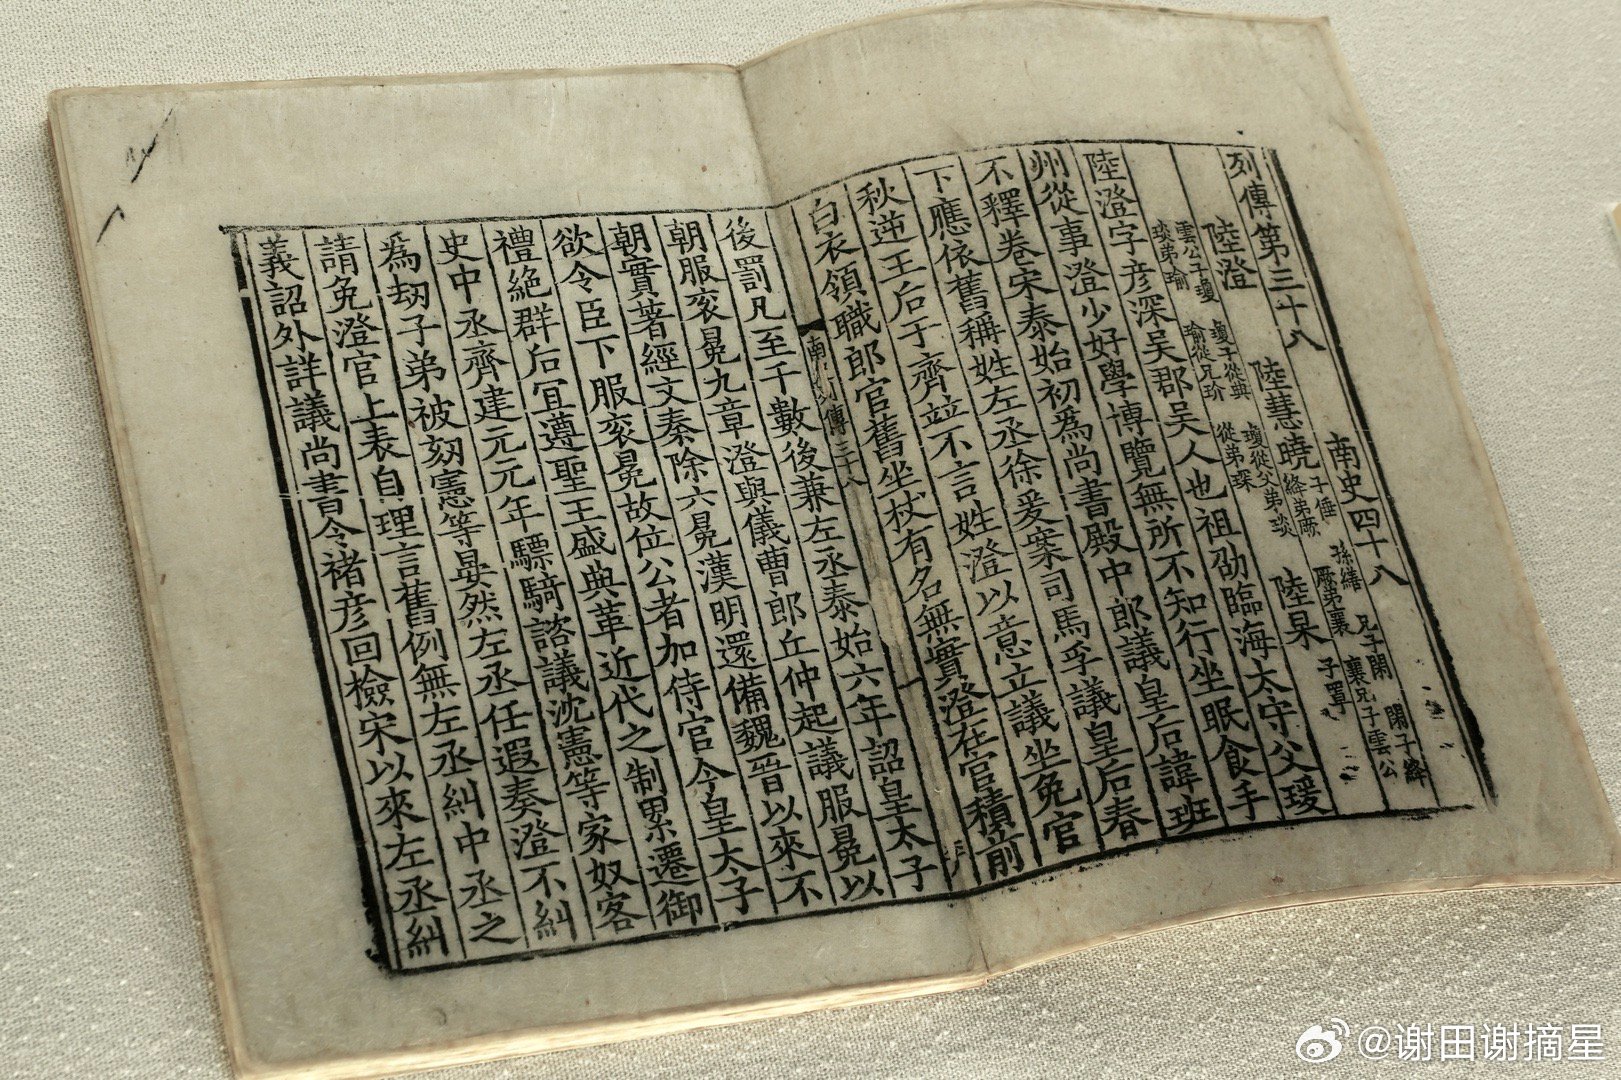 列傳第三十八 南史四十八
陸澄 陸慧曉 子倕 孫繕 兄子閑 閑子絳
絳弟厥 厥弟襄 襄兄子雲公
雲公子瓊 瓊子從典 瓊從父弟琰
琰弟瑜 瑜從兄玠 從弟琛
陸杲 子罩
陸澄字彦深吳郡吳人也祖劭臨海太守父瑗
州從事澄少好學博覽無所不知行坐眠食手
不釋卷宋泰始初爲尚書殿中郎議皇后諱班
下應依舊稱姓左丞徐爰案司馬孚議皇后春
秋逆王后于齊竝不言姓澄以意立議坐免官
白衣領職郎官舊坐杖有名無實澄在官積前
南 列傳三十八
後罰凡至千數後兼左丞泰始六年詔皇太子
朝服袞冕九章澄與儀曹郎丘仲起議服冕以
朝實著經文秦除六冕漢明還備魏晉以來不
欲令臣下服袞冕故位公者加侍官今皇太子
禮絕群后宜遵聖王盛典革近代之制累遷御
史中丞齊建元元年驃騎諮議沈憲等家奴客
爲劫子弟被劾憲等晏然左丞任遐奏澄不糾
請免澄官上表自理言舊例無左丞糾中丞之
義詔外詳議尚書令褚彦回檢宋以來左丞糾
@谢田谢摘星